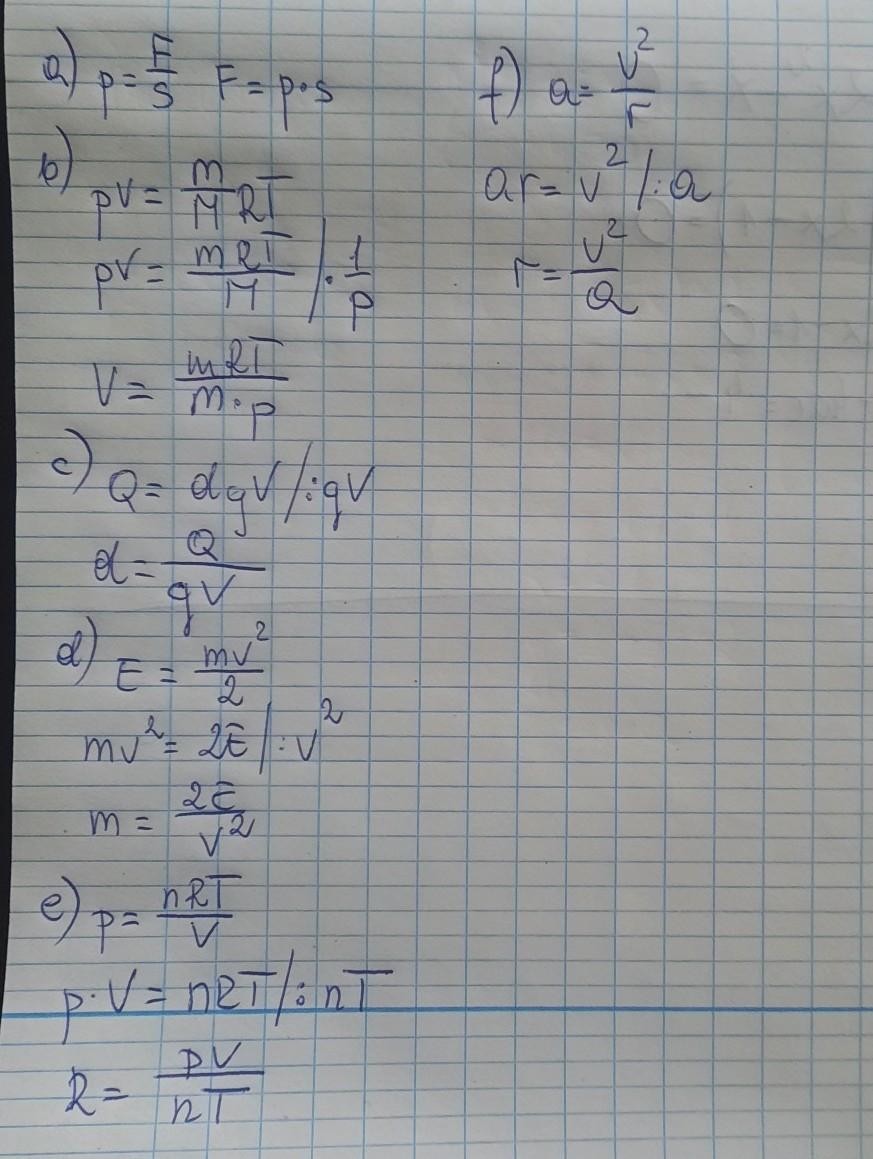 a) p = F/S F = p·s
b) pV = m/M RT
pV = mRT/M /· 1/p
V = mRT/m·p
c) Q = dgV /:gV
d = Q/gV
d) E = mv²/2
mv² = 2E /:v²
m = 2E/v²
e) p = nRT/V
p·V = nRT /: nT
R = pV/nT
f) a = v²/r
ar = v² /:a
r = v²/a